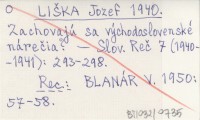 O LIŠKA Jozef 1940.
Zachovajú sa východoslovenské
nárečia? — Slov. Reč 7 (1940-
-1941): 293-298.
Rec.: BLANÁR V. 1950:
57-58.